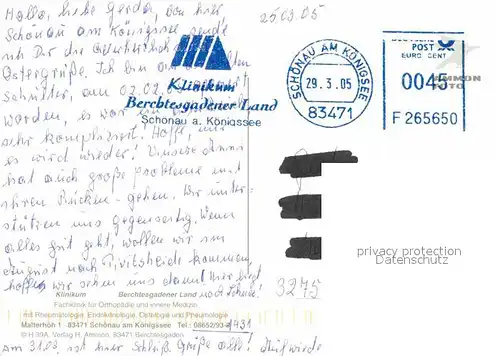 Hallo, liebe Gerda, von hier
Schönau am Königssee sende
ich Dir die
Ostergrüße. Ich bin am
Schulter, am 02.02.
worden, es war
sehr kompliziert! Hoffe,
es wird wieder! Unsere Anni
hat auch große Probleme mit
ihrem Rücken - gehen. Wir unter-
stützen uns gegenseitig. Wenn
alles gut geht, wollen wir im
August nach Pivitsheide kommen,
hoffe wir sehn uns dann! Hier liegt
noch Schnee!
25.03.05
Klinikum
Berchtesgadener Land
Schönau a. Königssee
SCHÖNAU AM KÖNIGSSEE
29.3.05
83471
POST
EURO CENT
0045
F 265650
AMMON
privacy protection
Datenschutz
3245
Klinikum Berchtesgadener Land
Fachklinik für Orthopädie und innere Medizin
mit Rheumatologie, Endokrinologie, Osteologie und Pneumologie
Malterhöh 1 · 83471 Schönau am Königssee Tel.: 08652/93
1431
© H 39A, Verlag H. Ammon, 83471 Berchtesgaden
Am 31.03. ist hier Schluß Grüße alle!